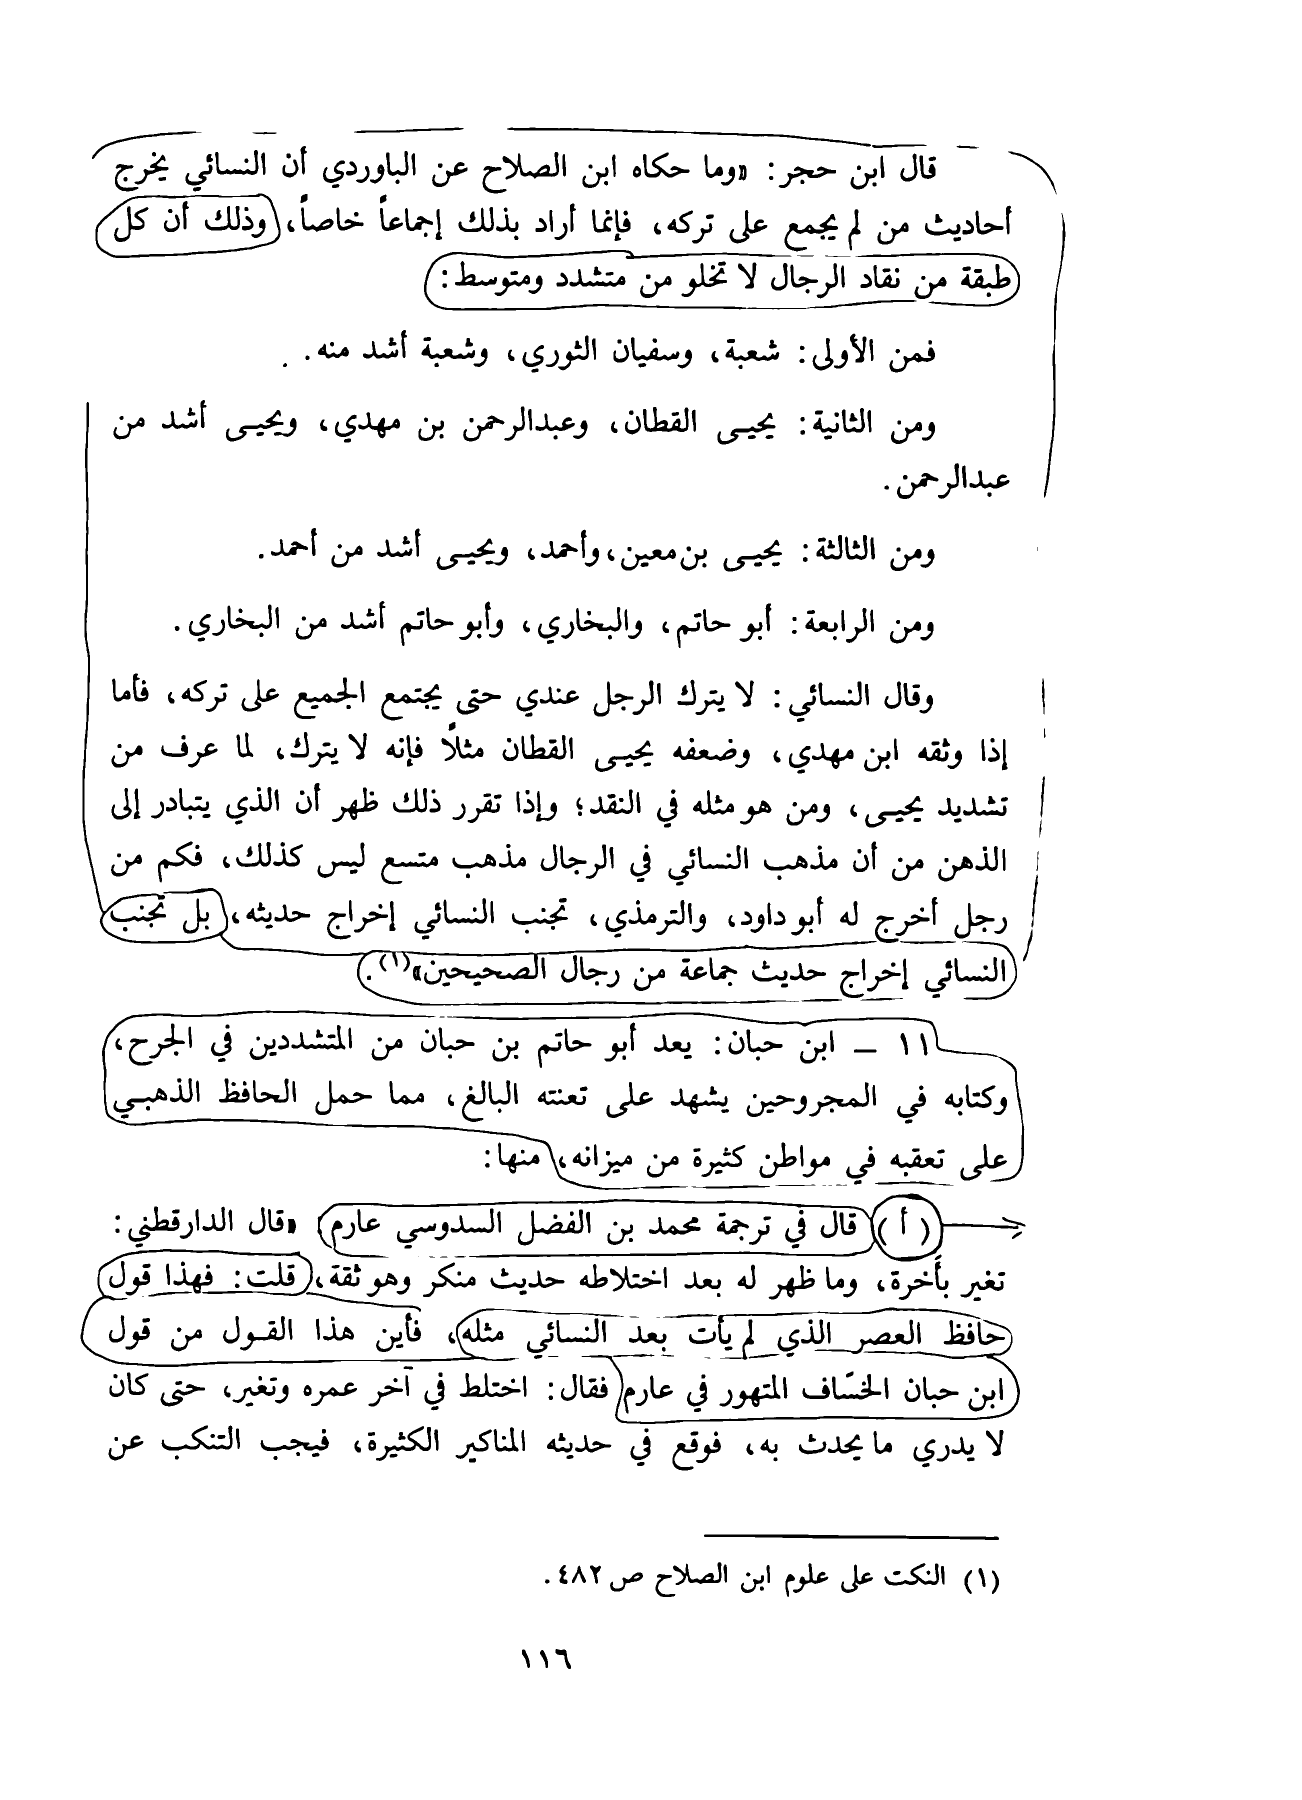 قال ابن حجر: «وما حكاه ابن الصلاح عن الباوردي أن النسائي يخرج
أحاديث من لم يجمع على تركه، فإنما أراد بذلك إجماعاً خاصاً، وذلك أن كل
طبقة من نقاد الرجال لا تخلو من متشدد ومتوسط:
فمن الأولى: شعبة، وسفيان الثوري، وشعبة أشد منه.
ومن الثانية: يحيـى القطان، وعبدالرحمن بن مهدي، ويحيـى أشد من
عبدالرحمن.
ومن الثالثة: يحيـى بن معين، وأحمد، ويحيـى أشد من أحمد.
ومن الرابعة: أبو حاتم، والبخاري، وأبو حاتم أشد من البخاري.
وقال النسائي: لا يترك الرجل عندي حتى يجتمع الجميع على تركه، فأما
إذا وثقه ابن مهدي، وضعفه يحيـى القطان مثلاً فإنه لا يترك، لما عرف من
تشديد يحيـى، ومن هو مثله في النقد؛ وإذا تقرر ذلك ظهر أن الذي يتبادر إلى
الذهن من أن مذهب النسائي في الرجال مذهب متسع ليس كذلك، فكم من
رجل أخرج له أبو داود، والترمذي، تجنب النسائي إخراج حديثه، بل تجنب
النسائي إخراج حديث جماعة من رجال الصحيحين»(١).
١١ ـ ابن حبان: يعد أبو حاتم بن حبان من المتشددين في الجرح،
وكتابه في المجروحين يشهد على تعنته البالغ، مما حمل الحافظ الذهبـي
على تعقبه في مواطن كثيرة من ميزانه، منها:
(أ) قال في ترجمة محمد بن الفضل السدوسي عارم) «قال الدارقطني:
تغير بأخرة، وما ظهر له بعد اختلاطه حديث منكر وهو ثقة، قلت: فهذا قول
حافظ العصر الذي لم يأت بعد النسائي مثله، فأين هذا القـول من قول
ابن حبان الخسّاف المتهور في عارم فقال: اختلط في آخر عمره وتغير، حتى كان
لا يدري ما يحدث به، فوقع في حديثه المناكير الكثيرة، فيجب التنكب عن
(١) النكت على علوم ابن الصلاح ص ٤٨٢.
١١٦